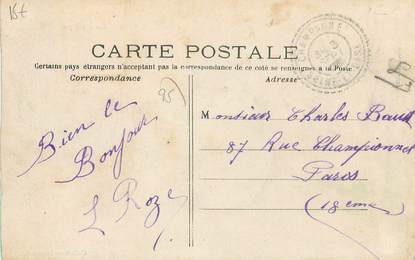 15€
CARTE POSTALE
Certains pays étrangers n'acceptant pas la correspondance de ce coté se renseigner à la Poste
Correspondance
Adresse
95
Bien le
Bonjour
L Roze
Monsieur Charles
87 Rue Championnet
Paris
(18eme)